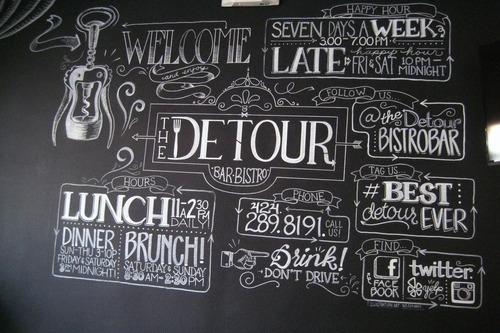 WELCOME
and enjoy
HAPPY HOUR
SEVEN DAYS A WEEK
3.00 - 7.00PM
happy hour
LATE FRI & SAT 10 PM - MIDNIGHT
FOLLOW US
@the Detour
BISTROBAR
THE DETOUR
BAR·BISTRO
TAG US
#BEST
detour EVER
HOURS
LUNCH 11A 2:30 PM
DAILY!
DINNER
SUN-THU 3-10P
FRIDAY & SATURDAY
MIDNIGHT!
BRUNCH!
SATURDAY & SUNDAY
8:30 AM - 2:30 PM
PHONE
424
289.8191
CALL US!
Drink!
DON'T DRIVE
FIND
f
FACE
BOOK
twitter
yelp